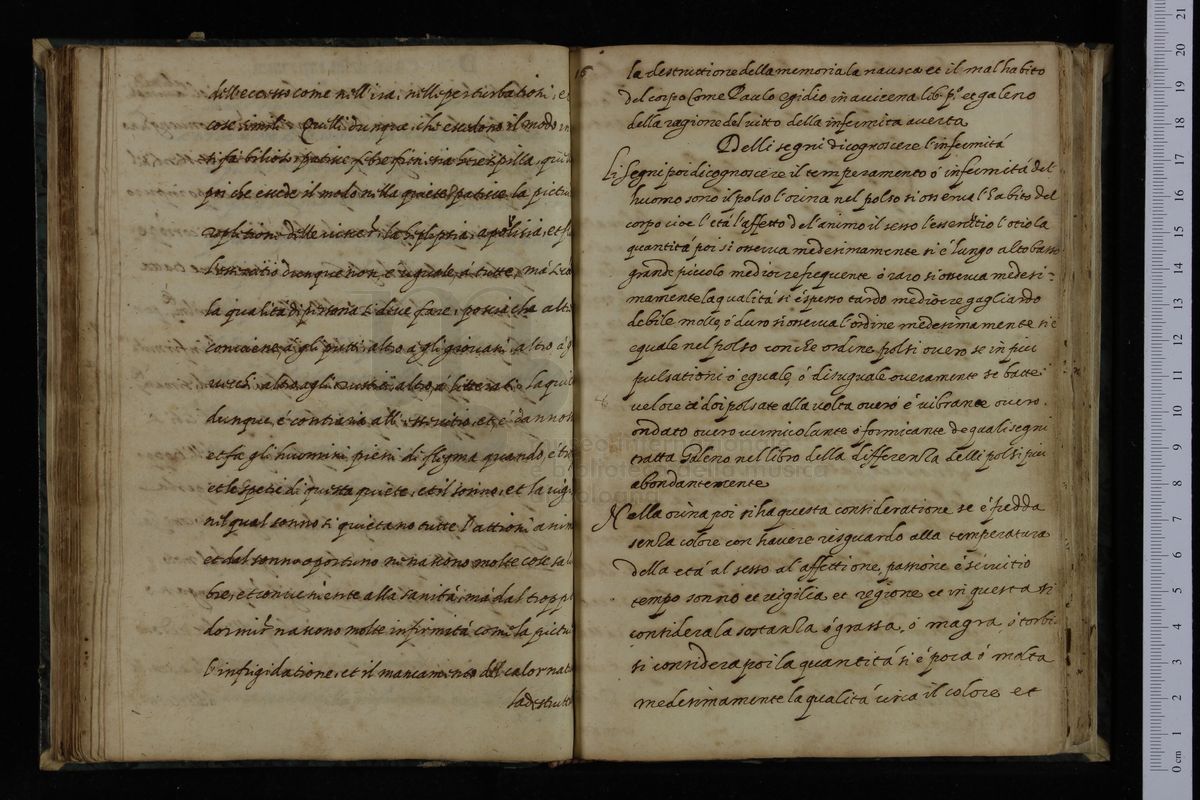 dell'eccesso come nell'ira, nelle perturbationi, et
cose simili. Quelli dunque, che escedono il modo in
pri che escede il modo nella quiete patisce la
repletione delle viscere, la epilepsia, apoplisia, et
L'essercitio dunque non è uguale, á tutte, má
la qualitá di persona si deve fare, poscia che altro
conviene á gli putti, altro á gli giovani, altro á
vecchi, altro, agli rustici, altro, á litterati, la quiete
dunque, é contraria all'essercitio, et é dannosa
et fa gli huomini pieni di flegma quando, é
et le specie di questa quiete, et il sonno, et la vigi
nel qual sonno si quietano tutte l'attioni anim
et dal sonno oportuno ne nascono molte cose sa
bre, et conveniente alla sanitá, má dal troppo
dormire nascono molte infirmitá come la
l'infrigidatione, et il mancamento del calor natu
la destrutt
16
la destruttione della memoria la nausea et il mal habito
del corpo Come Paulo egidio in avicena lib. p.º et galeno
della ragione del vitto della infermita averta
Delli segni di cognoscere l'infermitá
Li segni poi di cognoscere il temperamento ó infermitá del
huomo sono il polso l'orina nel polso si osserva l'habito del
corpo cioe l'etá l'affetto del animo il sesso l'essercitio l'otio la
quantitá poi si osserva medesimamente si é lungo alto basso
grande piccolo mediocre frequente ó raro si osserva medesi-
mamente la qualitá si é spesso tardo mediocre gagliardo
debile molle ó duro si osserva l'ordine medesimamente si é
eguale nel polso con che ordine polsi overo se in piu
pulsationi ó eguale, ó disuguale overamente se batte
veloce doi polsate alla volta overó é vibrante overo
ondato overo vermicolante ó formicante de quali segni
tratta Galeno nel libro della differenza delli polsi piu
abondantemente
Nella orina poi si ha questa consideratione se é fredda
senza colore con havere risguardo alla temperatura
della etá al sesso al affettione, passione esercitio
tempo sonno et vigilia et regione et in questa si
considera la sostanza ó grassa, ó magra, ó torbi.
si considera poi la quantitá si é poca ó molta
medesimamente la qualitá circa il colore et
museo internazionale
e biblioteca della musica
bologna
0 cm 1 2 3 4 5 6 7 8 9 10 11 12 13 14 15 16 17 18 19 20 21